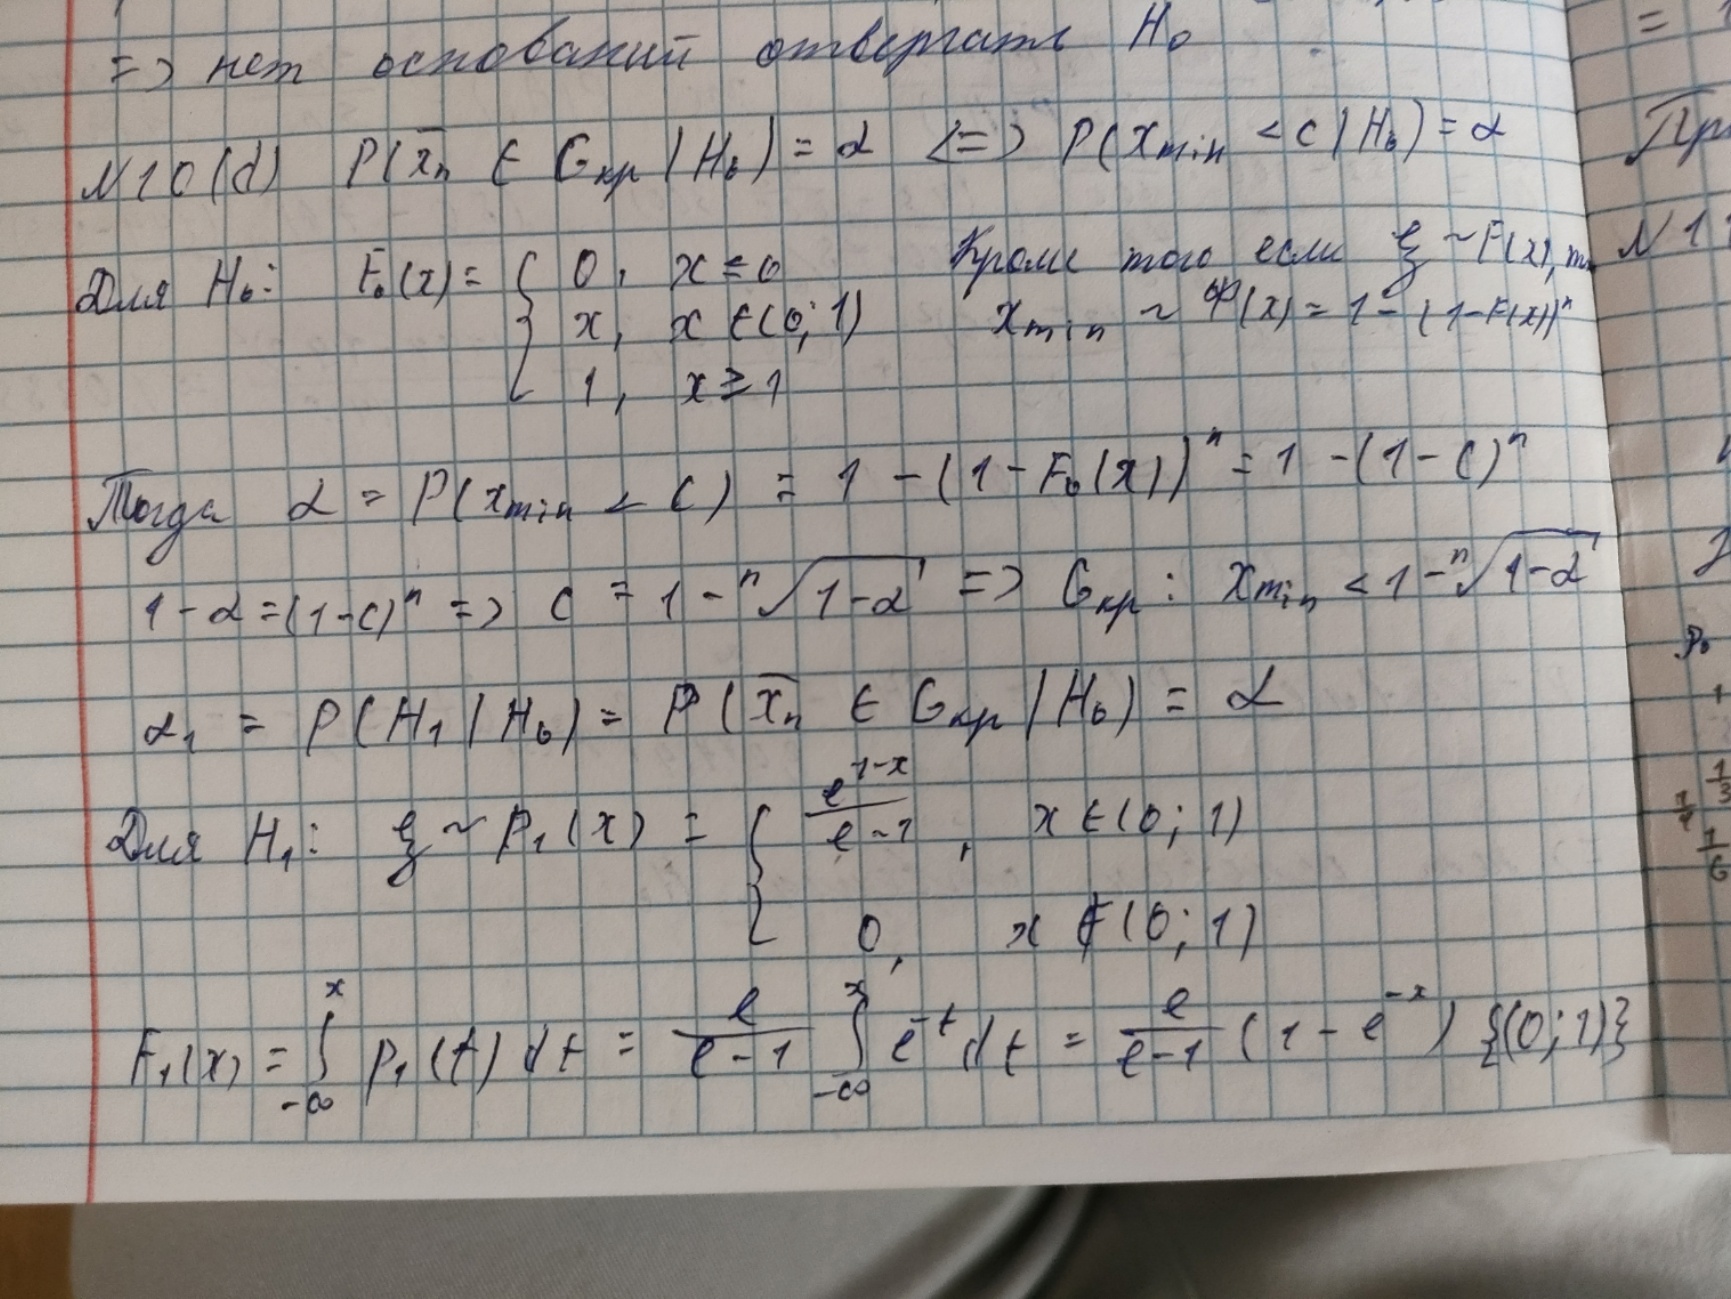 => нет оснований отвергать H₀
N10(d) P(x̄ₙ ∈ Gкр | H₀) = α <=> P(xmin < c | H₀) = α
Для H₀: F₀(x) = { 0, x ≤ 0
x, x ∈ (0; 1)
1, x ≥ 1
Кроме того если ξ ~ F(x), то
xmin ~ φ(x) = 1 - (1 - F(x))ⁿ
Тогда α = P(xmin < c) = 1 - (1 - F₀(x))ⁿ = 1 - (1 - c)ⁿ
1 - α = (1 - c)ⁿ => c = 1 - ⁿ√(1-α) => Gкр: xmin < 1 - ⁿ√(1-α)
α₁ = P(H₁ | H₀) = P(x̄ₙ ∈ Gкр | H₀) = α
Для H₁: ξ ~ p₁(x) = { e^(1-x)/(e-1), x ∈ (0; 1)
0, x ∉ (0; 1)
F₁(x) = ∫_{-∞}^{x} p₁(t) dt = e/(e-1) ∫_{-∞}^{x} e^(-t) dt = e/(e-1) (1 - e^(-x)) {(0; 1)}
=
N1
1/3
1/6